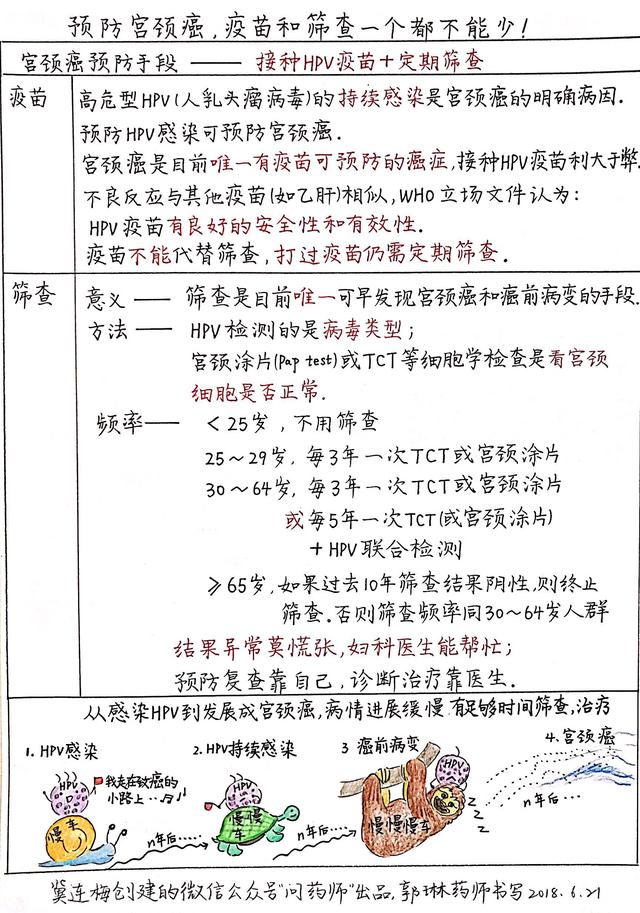 预防宫颈癌,疫苗和筛查一个都不能少!
宫颈癌预防手段 —— 接种HPV疫苗+定期筛查
疫苗
高危型HPV(人乳头瘤病毒)的持续感染是宫颈癌的明确病因.
预防HPV感染可预防宫颈癌.
宫颈癌是目前唯一有疫苗可预防的癌症,接种HPV疫苗利大于弊.
不良反应与其他疫苗(如乙肝)相似,WHO立场文件认为:
HPV疫苗有良好的安全性和有效性.
疫苗不能代替筛查,打过疫苗仍需定期筛查.
筛查
意义 —— 筛查是目前唯一可早发现宫颈癌和癌前病变的手段.
方法 —— HPV检测的是病毒类型;
宫颈涂片(Pap test)或TCT等细胞学检查是看宫颈
细胞是否正常.
频率—— <25岁,不用筛查
25~29岁,每3年一次TCT或宫颈涂片
30~64岁,每3年一次TCT或宫颈涂片
或每5年一次TCT(或宫颈涂片)
+HPV联合检测
≥65岁,如果过去10年筛查结果阴性,则终止
筛查.否则筛查频率同30~64岁人群
结果异常莫慌张,妇科医生能帮忙;
预防复查靠自己,诊断治疗靠医生.
从感染HPV到发展成宫颈癌,病情进展缓慢 有足够时间筛查,治疗
1. HPV感染
2. HPV持续感染
3 癌前病变
4. 宫颈癌
HPV
我走在致癌的
小路上…♪♫
慢车
n年后…
HPV
慢慢车
n年后…
HPV
慢慢慢车
z
z
z
n年后…
冀连梅创建的微信公众号"问药师"出品,郭琳药师书写2018.6.21